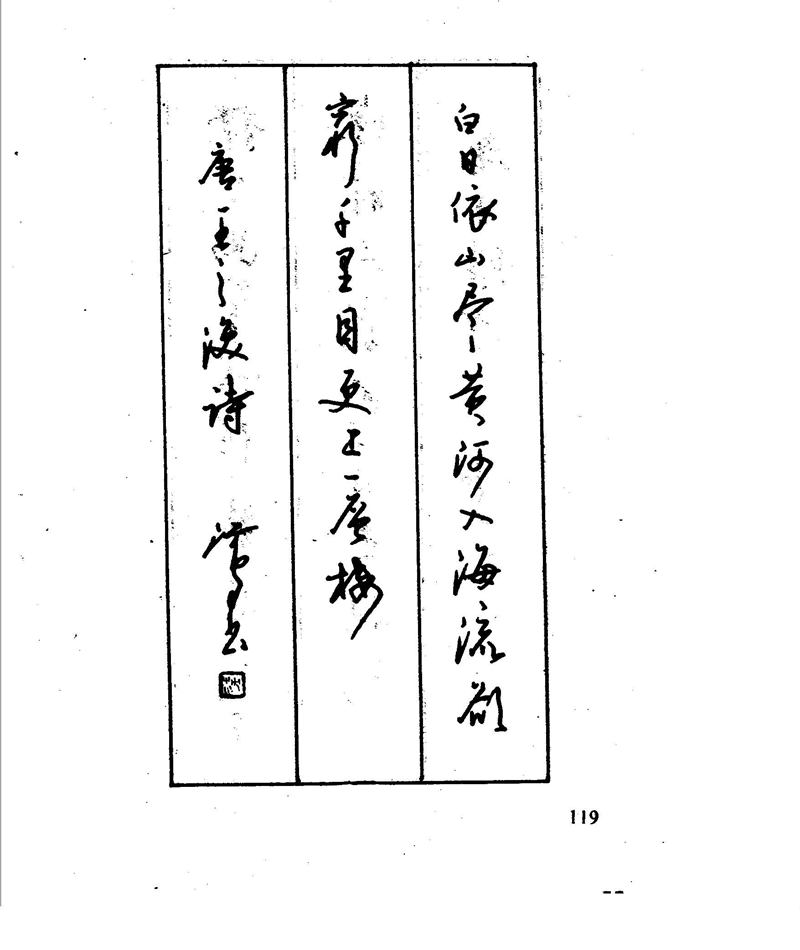 白日依山尽黄河入海流欲
穷千里目更上一层楼
唐王之涣诗 书
119